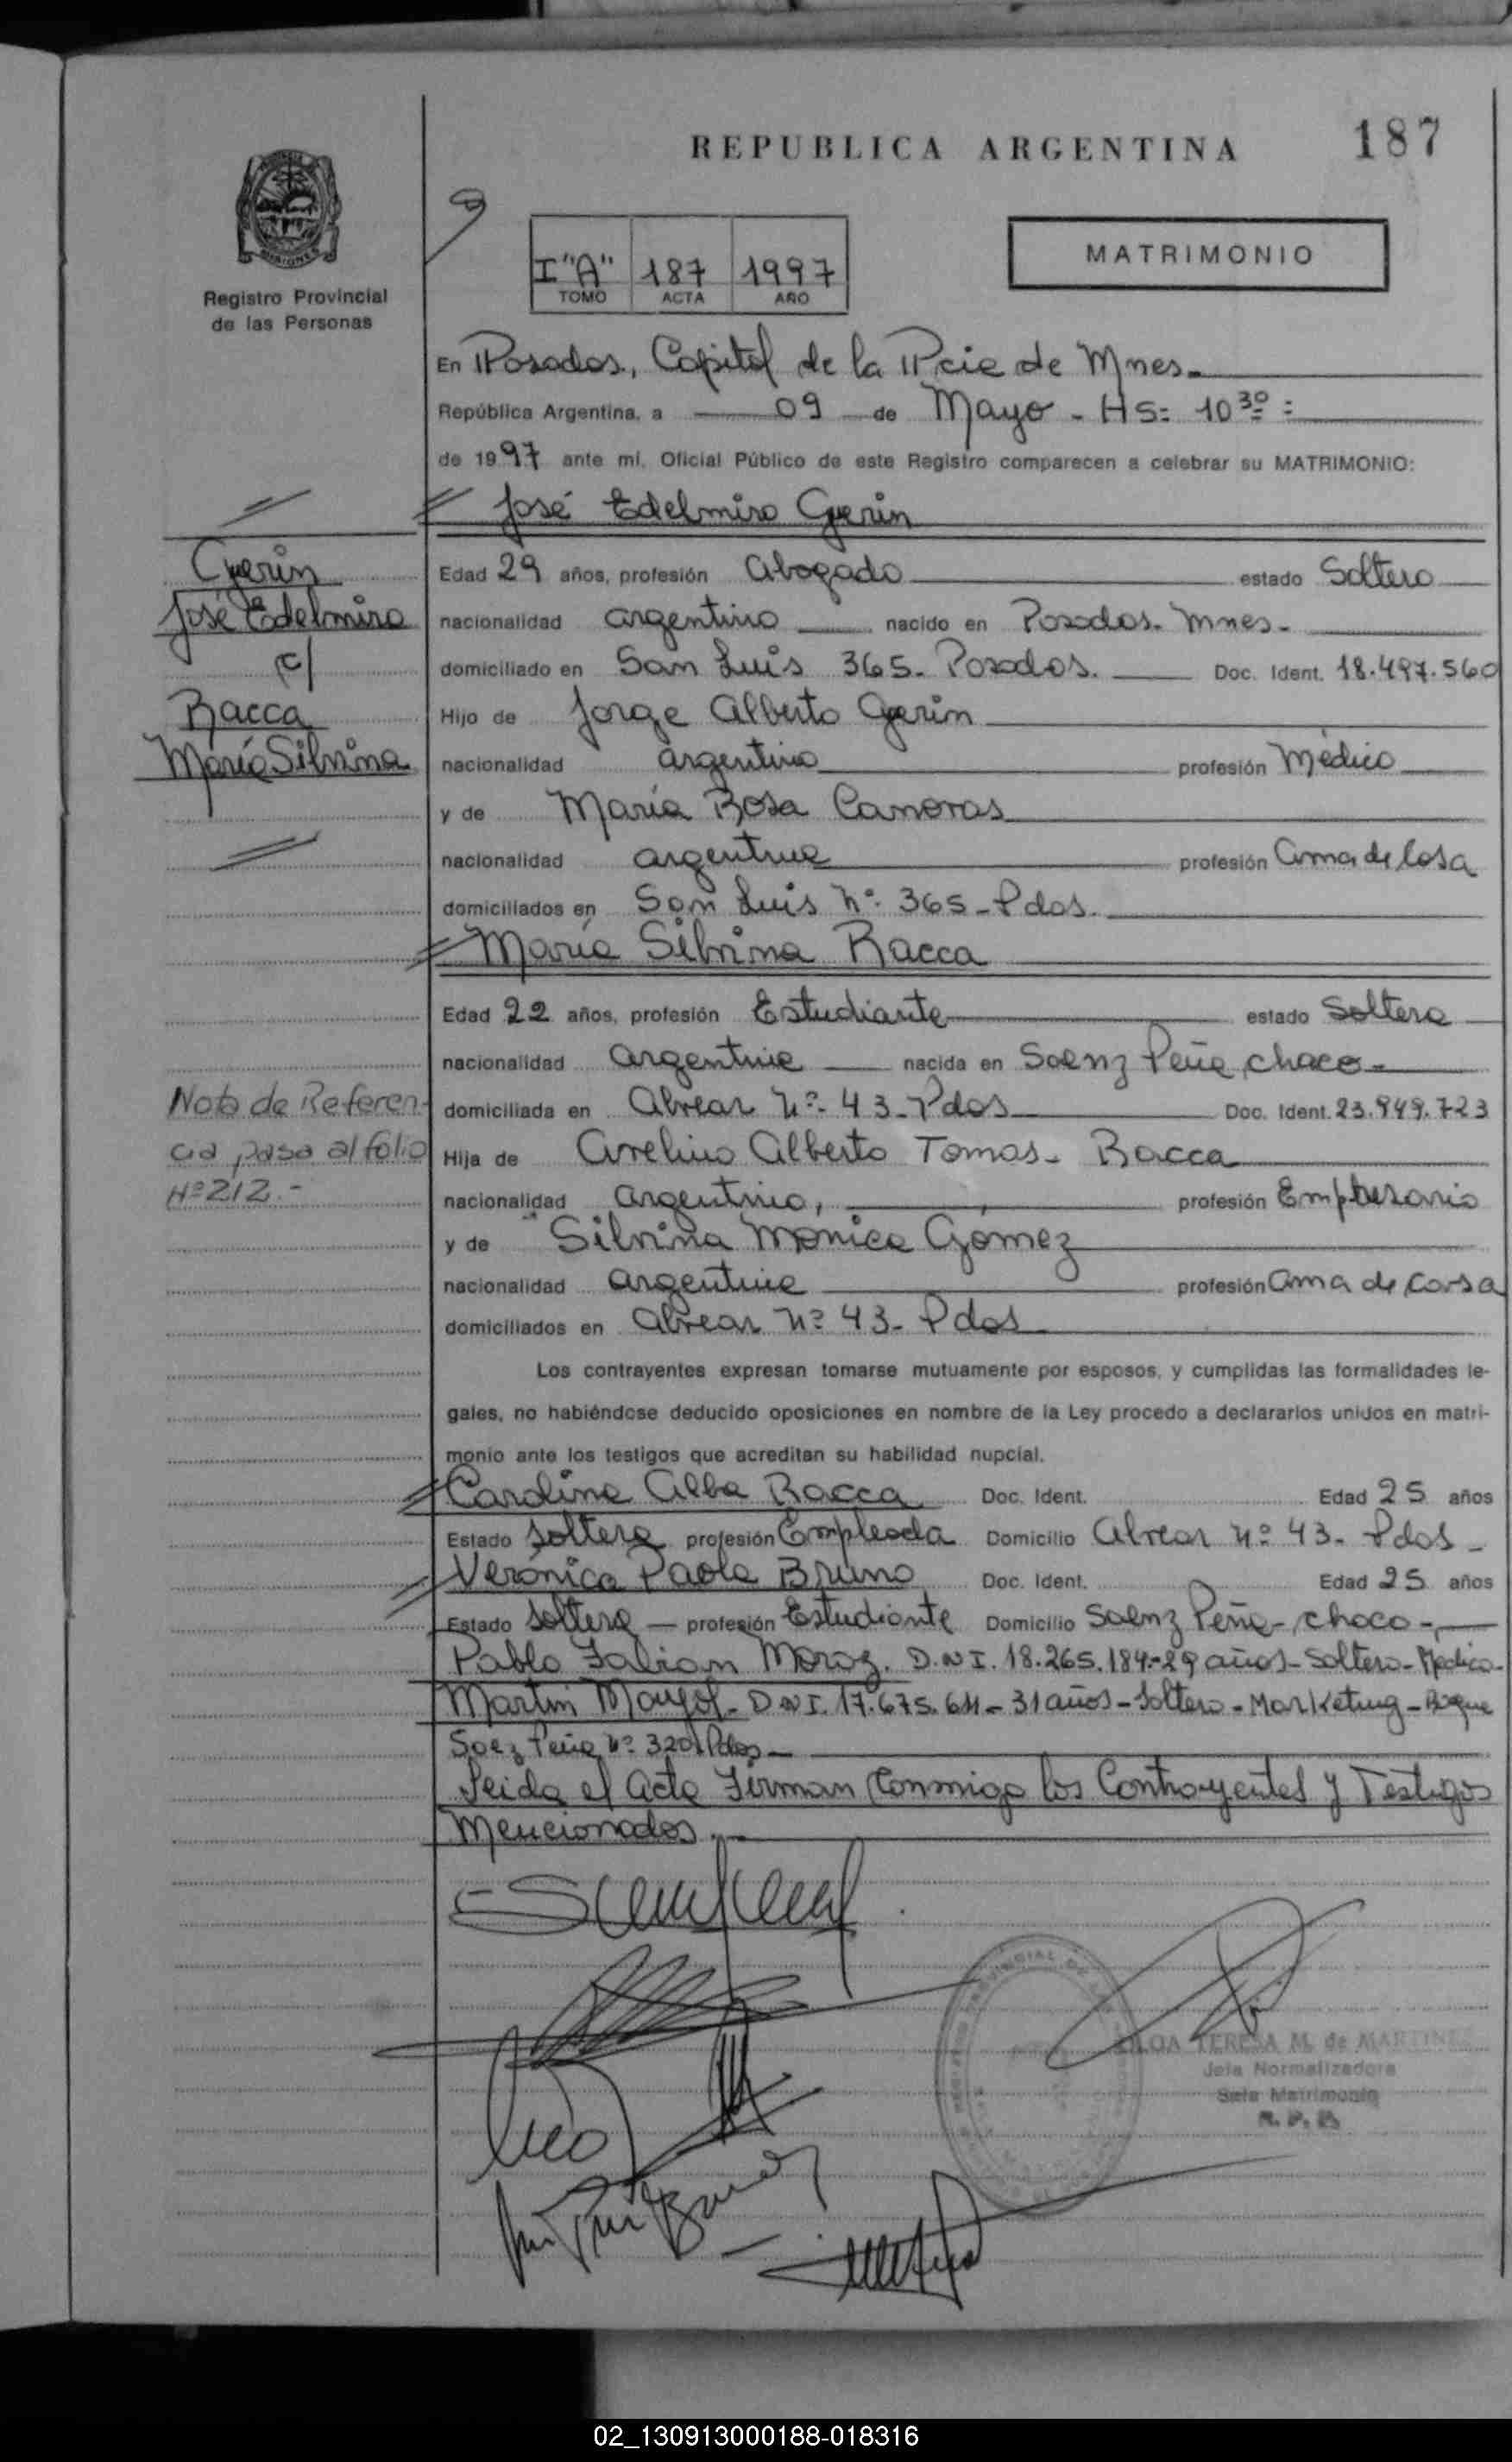 REPUBLICA ARGENTINA
187
MISIONES
Registro Provincial
de las Personas
I "A" 187 1997
TOMO ACTA AÑO
MATRIMONIO
En Posadas, Capital de la Pcia de Mnes.
República Argentina, a 09 de Mayo - Hs: 10 30 =
de 1997 ante mí, Oficial Público de este Registro comparecen a celebrar su MATRIMONIO:
José Edelmiro Guerin
Guerin
José Edelmiro
c/
Racca
María Silvina
Edad 29 años, profesión Abogado estado Soltero
nacionalidad argentino nacido en Posadas. Mnes.
domiciliado en San Luis 365. Posadas. Doc. Ident. 18.497.560
Hijo de Jorge Alberto Guerin
nacionalidad argentino profesión Médico
y de María Rosa
nacionalidad argentina profesión ama de Casa
domiciliados en San Luis Nº 365 - Pdas.
María Silvina Racca
Edad 22 años, profesión Estudiante estado Soltera
nacionalidad Argentina nacida en Saenz Peña, Chaco -
domiciliada en Alvear Nº 43 - Pdas Doc. Ident. 23.949.723
Hija de Avelino Alberto Tomas - Racca
nacionalidad Argentino, profesión Empresario
y de Silvina Monica Gómez
nacionalidad argentina profesión ama de casa
domiciliados en Alvear Nº 43 - Pdas
Nota de Referen-
cia pasa al folio
Nº 212.-
Los contrayentes expresan tomarse mutuamente por esposos, y cumplidas las formalidades le-
gales, no habiéndose deducido oposiciones en nombre de la Ley procedo a declararlos unidos en matri-
monio ante los testigos que acreditan su habilidad nupcial.
Carolina Alba Racca Doc. Ident. Edad 25 años
Estado soltera profesión Empleada Domicilio Alvear Nº 43 - Pdas -
Verónica Paola Bruno Doc. Ident. Edad 25 años
Estado soltera - profesión Estudiante Domicilio Saenz Peña - Chaco -
Pablo Fabian Moroz. D.N.I. 18.265.184.- 29 años - Soltero - Medico -
Martin Mayol - D.N.I. 17.675.611 - 31 años - Soltero - Marketing - Roque
Saez Peña Nº 320 Pdas -
Leida el Acta Firman Conmigo los Contrayentes y Testigos
Mencionados.
TERESA M. de MARTINEZ
Jefa Normalizadora
Sala Matrimonio
R. P. P.
02_130913000188-018316